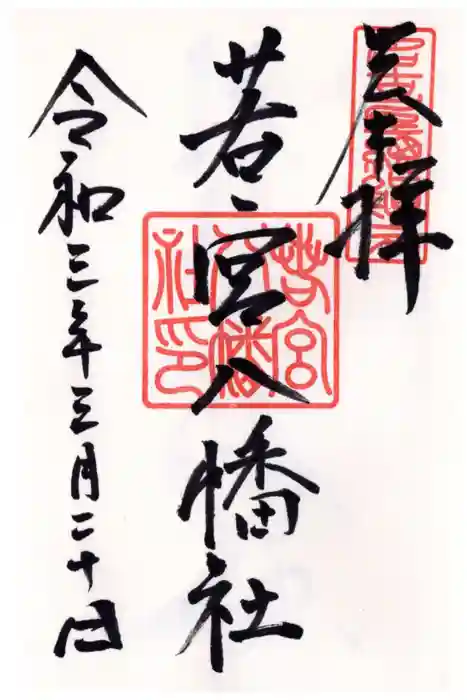 奉拝
若宮八幡社
若宮八幡社印
令和三年三月二十日